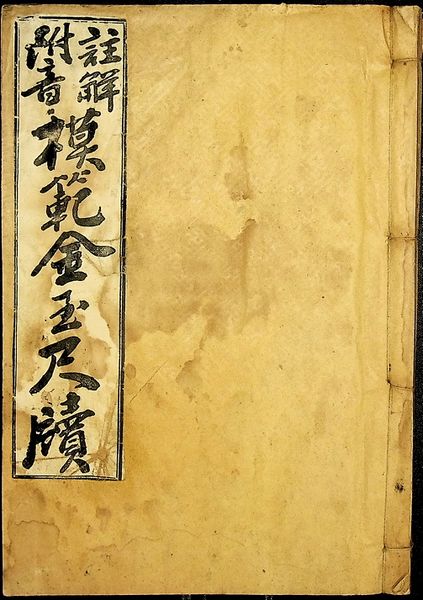 註解
附音
模範金玉尺牘